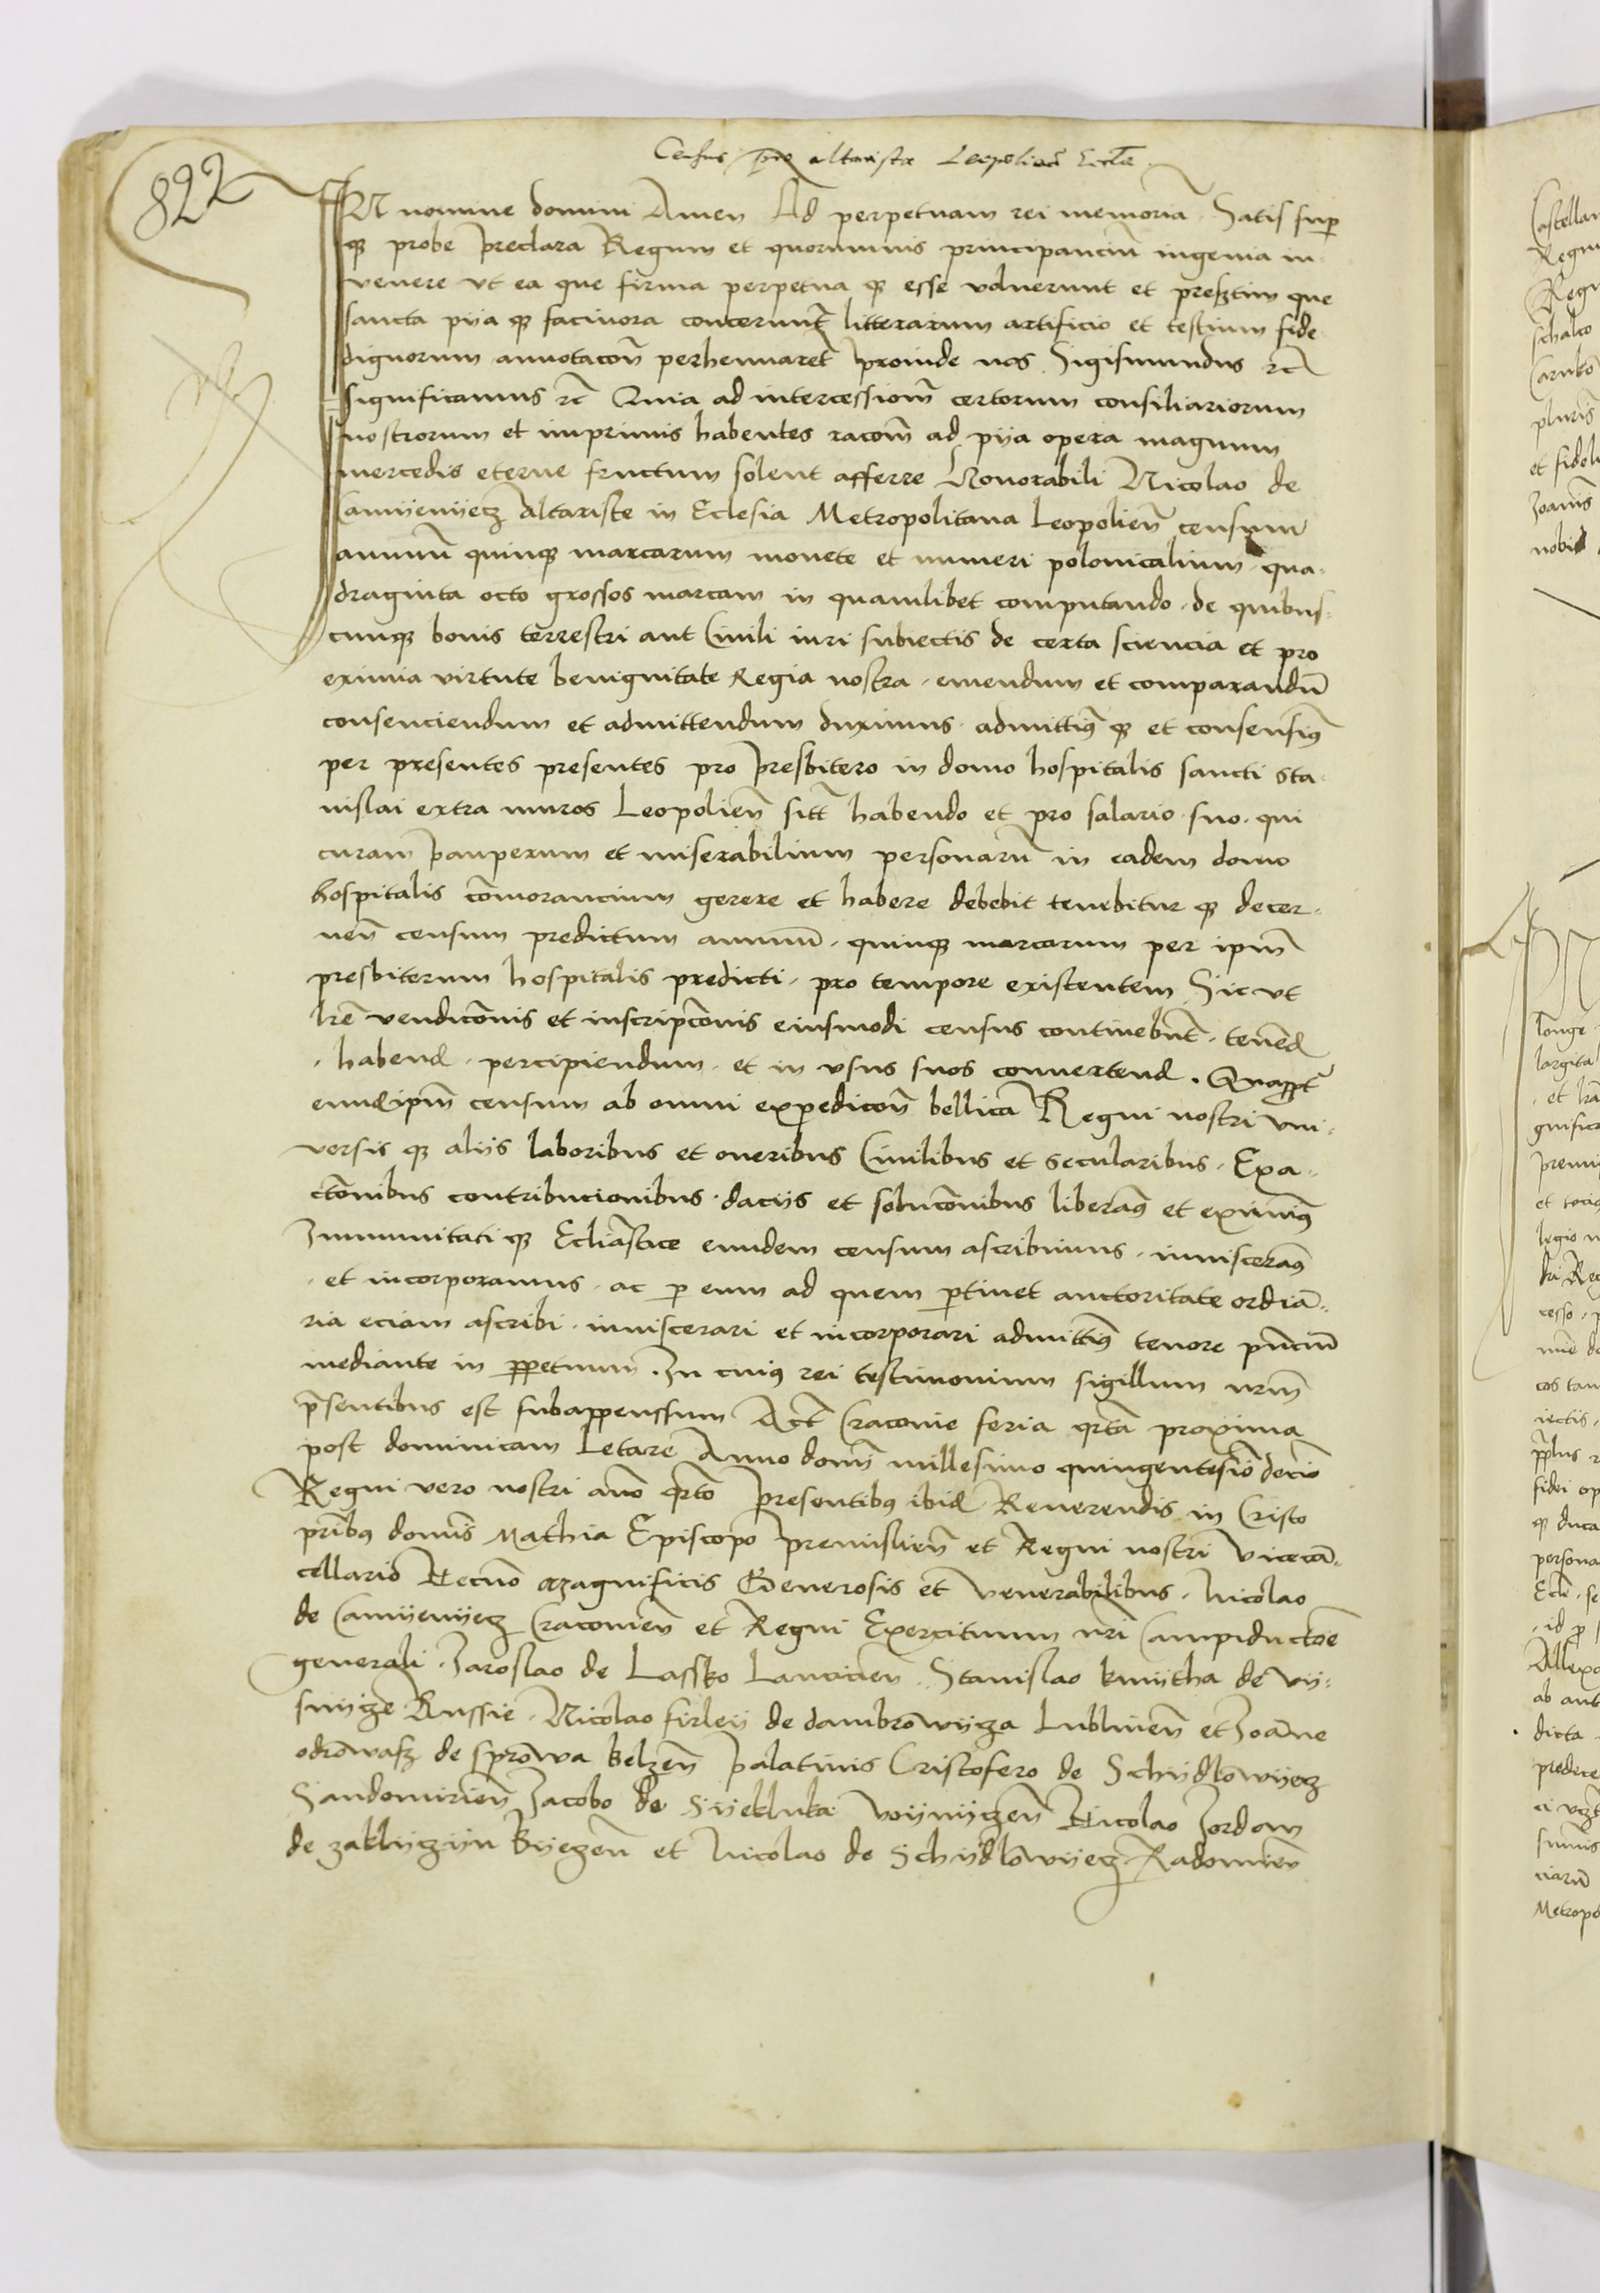 822
Census pro altarista Leopolien Eccle
IN nomine domini Amen Ad perpetuam rei memoriã Satis sup
qꝫ probe preclara Regum et quorumuis principanciũ ingenia in
venere vt ea que firma perpetua qꝫ esse voluerunt et presertim que
sancta piia qꝫ facinora concernunt litterarum artificio et testium fide
dignorum annotacoñ perhennarent proinde nos Sigismundus ⁊c̃
significamus ⁊c̃ Quia ad intercessionẽ certorum consiliariorum
nostrorum et inprimis habentes racoñ ad piia opera magnum
mercedis eterne fructum solent afferre Honorabili Nicolao de
Camyenyecz Altariste in Eclesia Metropolitana Leopolieñ censum
annuũ quinqꝫ marcarum monete et numeri polonicalium, qua-
draginta octo grossos marcam in quamlibet computando, de quibus-
cunqꝫ bonis terrestri aut Ciuili iuri subiectis de certa sciencia et pro
eximia virtute benignitate Regia nostra, emendum et comparandũ
consenciendum et admittendum duximus, admittimꝰ qꝫ et consensimꝰ
per presentes presentes pro presbitero in domo hospitalis sancti Sta-
nislai extra muros Leopolieñ sitt̃ habendo et pro salario suo, qui
curam pauperum et miserabilium personarũ in eadem domo
hospitalis cõmorancium gerere et habere debebit tenebitur qꝫ decer-
neñ censum predictum annuũ, quinqꝫ marcarum per ipm̃
presbiterum hospitalis predicti, pro tempore existentem Sic vt
lr̃e vendicõnis et inscripcõnis eiusmodi census continebũt, tenend
, habend, percipiendum, et in vsus suos conuertend. Quapropt̃
eundẽ ipm̃ censum ab omni expedicoñ bellica Regni nostri vni-
uersis qꝫ aliis laboribus et oneribus Ciuilibus et secularibus, Exa-
ctõnibus contribucionibus, daciis et solucõnibus liberamꝰ et eximimꝰ
Immunitati qꝫ Ecliãstice eundem censum ascribimus, inuisceramꝰ
, et incorporamus, ac p eum ad quem ptinet auctoritate ordiã-
ria eciam ascribi, inuiscerari et incorporari admittimꝰ tenore pñciũ
mediante in ppetuum. In cuiꝰ rei testimonium sigillum nrm̃
p̃sentibus est subappenssum Act̃ Cracouie feria qrta proxima
post dominicam Letare Anno domĩ millesimo quingentesiõ deciõ
Regni vero nostri año qrto Presentibꝰ ibid Reuerendis in Cristo
pribꝰ domis Mathia Episcopo Premislieñ et Regni nostri Vicecã-
cellario Necnõ Magnificis Generosis et Venerabilibus, Nicolao
de Camyenyecz Cracouieñ et Regni Exercituum nri Campiductore
generali, Iaroslao de Lassko Lancicieñ, Stanislao kmytha de Vy-
snycze Russie, Nicolao firley de dambrowycza Lublineñ et Ioãne
odrowasz de sprowa Belzeñ Palatinis Cristofero de Schydlowyecz
Sandomirieñ Iacobo de Syekluka Voynyczeñ Nicolao Iordan
de zaklyczyn Byeczeñ et Nicolao de Schydlowyecz Radomieñ